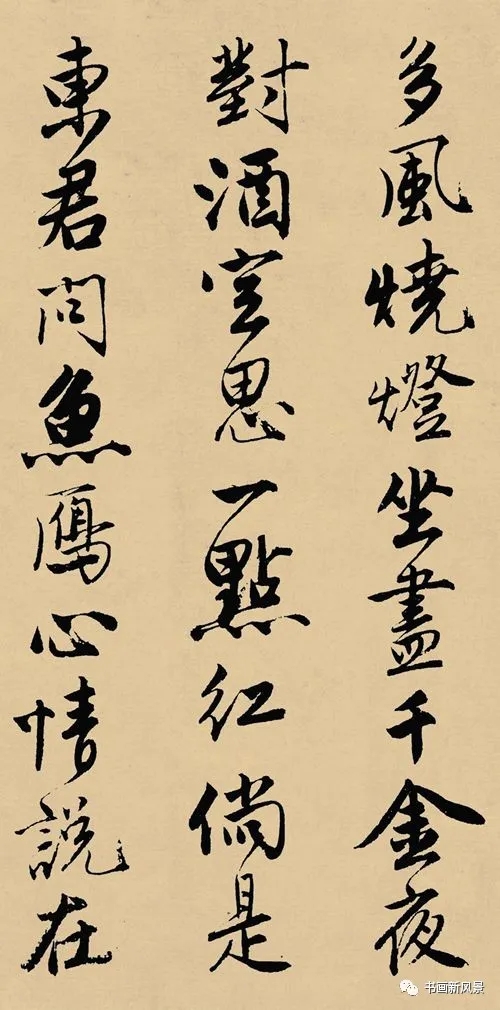 多風燒燈坐盡千金夜
對酒空思一點紅倘是
東君問魚鴈心情說在
书画新风景